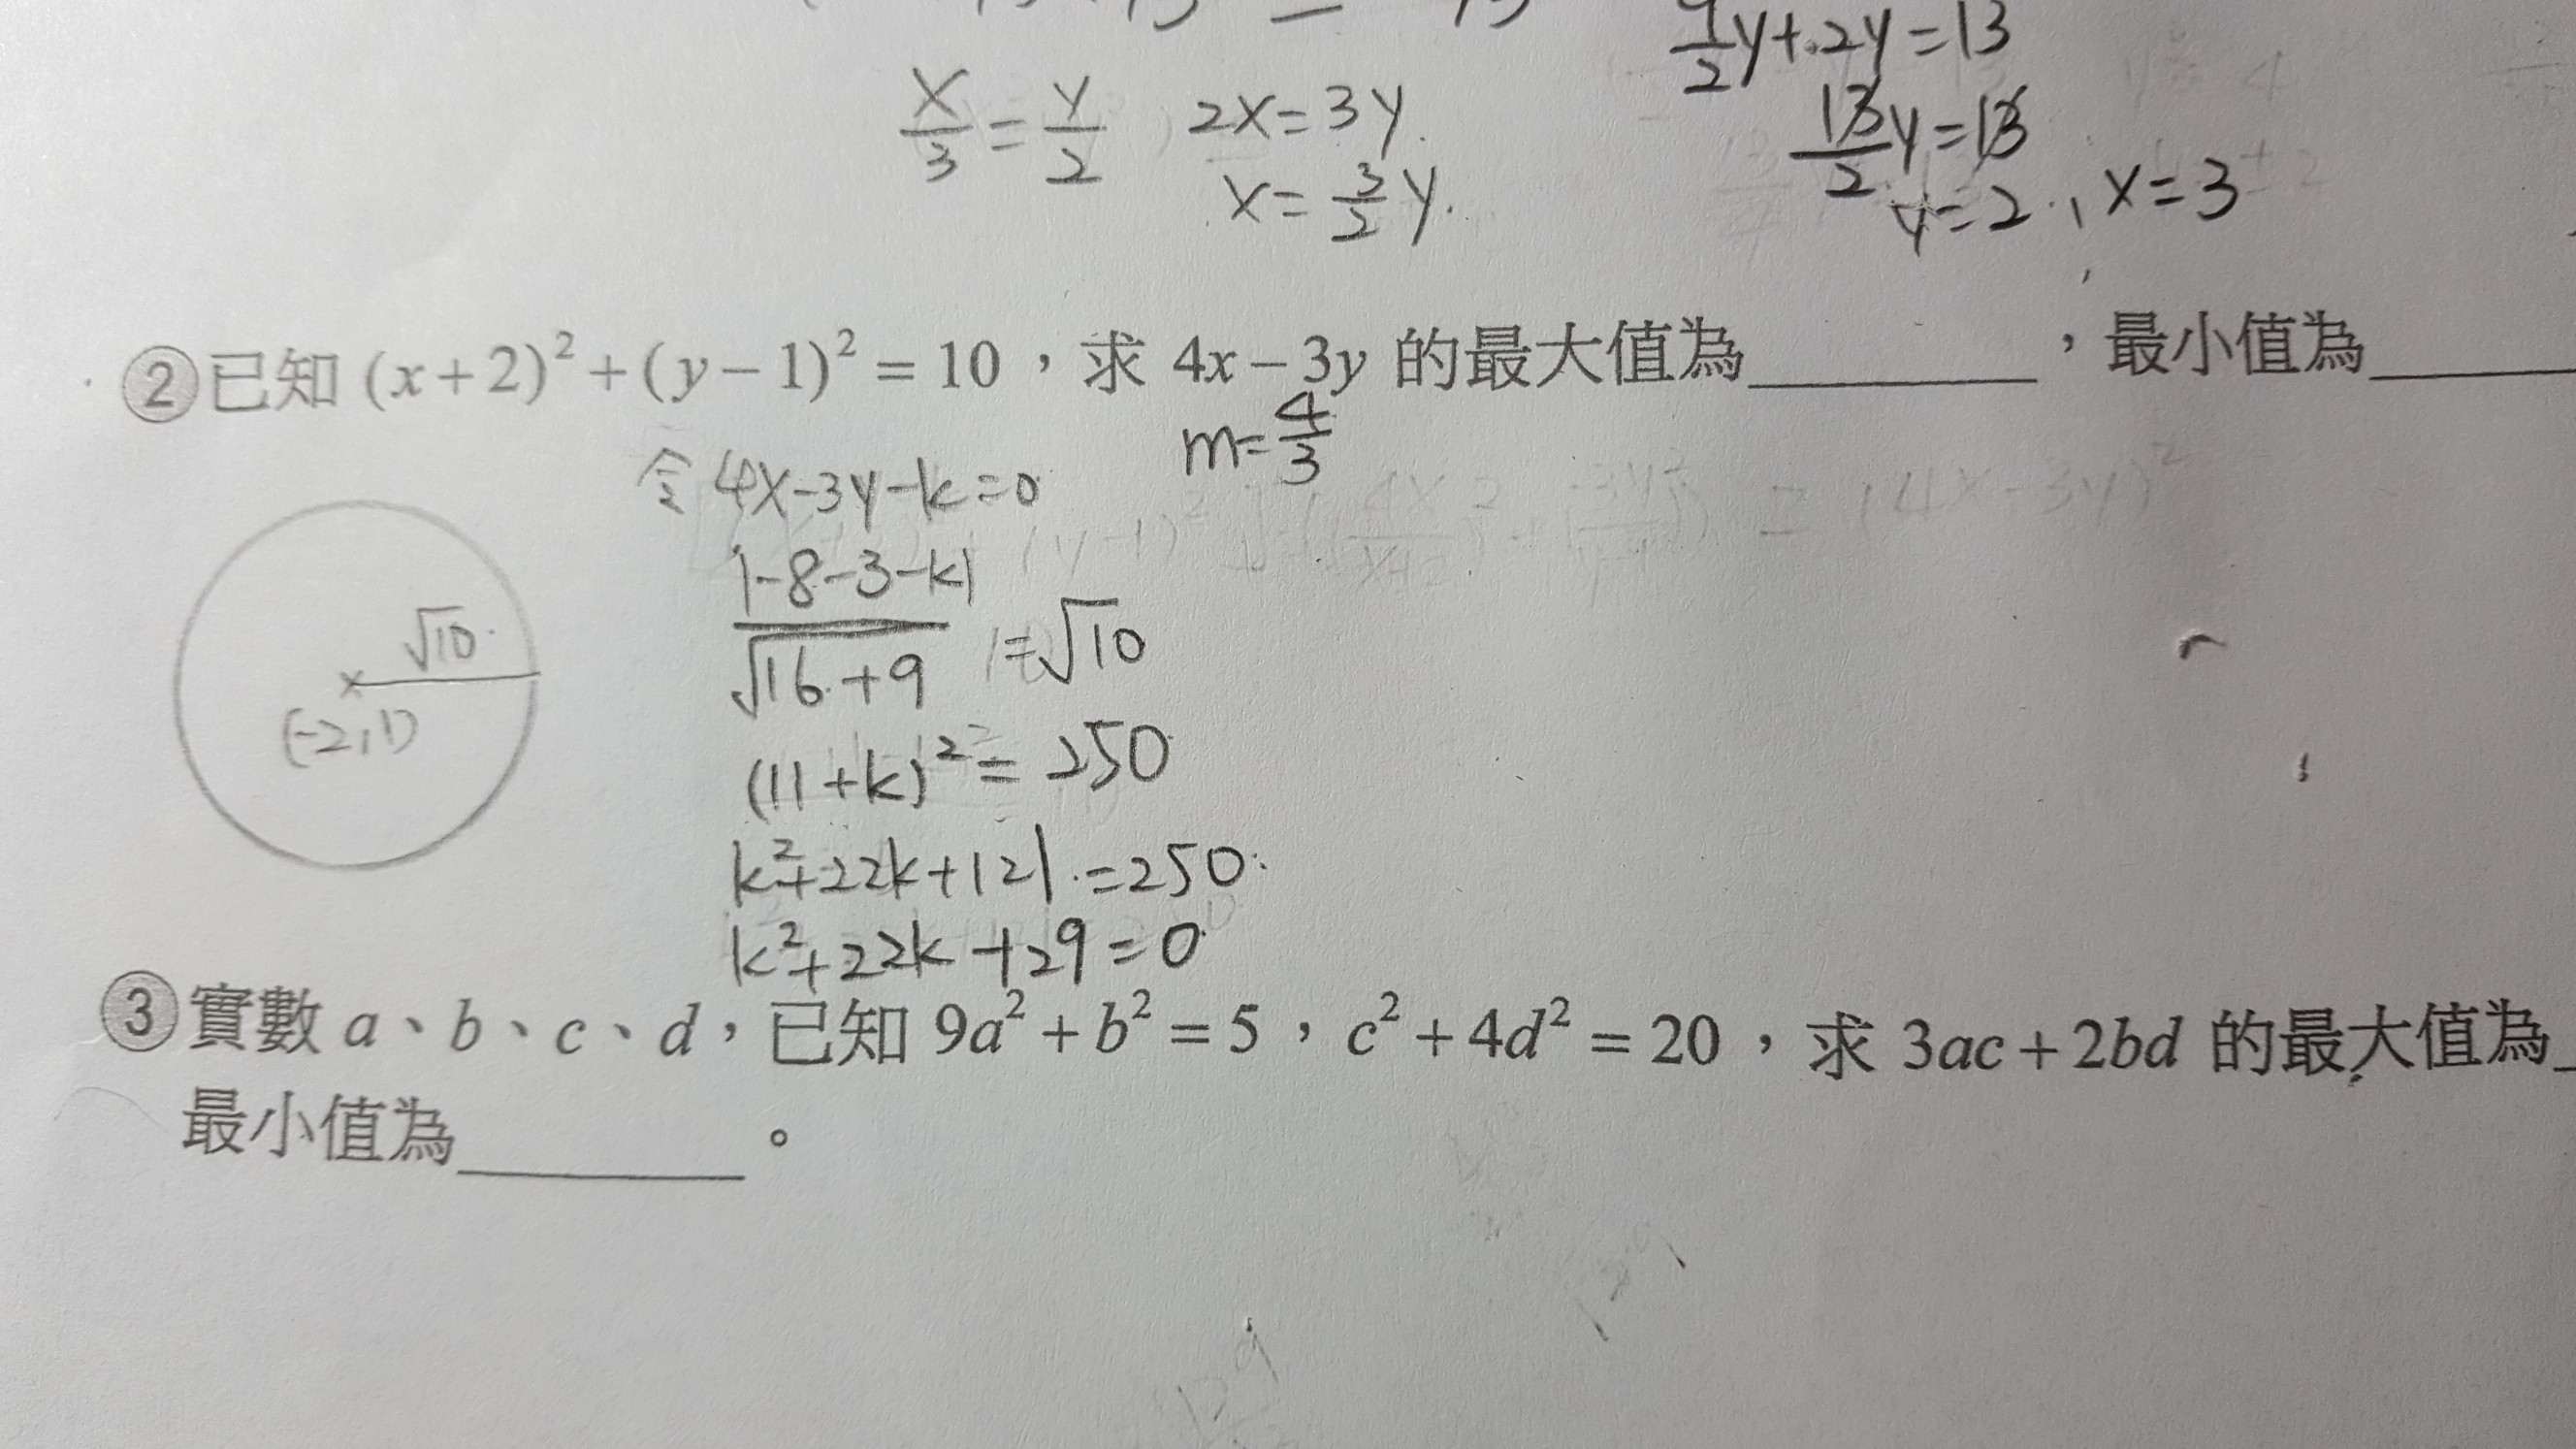 x/3 = y/2 2x=3y.
x= 3/2 y.
9/2 y+2y=13
13/2 y=13
y=2, x=3
②已知 (x+2)² + (y−1)² = 10，求 4x−3y 的最大值為________，最小值為______
m=4/3
令 4x-3y-k=0
|-8-3-k| / √16+9 = √10
√10
(-2,1)
(11+k)² = 250
k²+22k+121=250
k²+22k+29=0
③實數 a、b、c、d，已知 9a² + b² = 5，c² + 4d² = 20，求 3ac+2bd 的最大值為_
最小值為________。